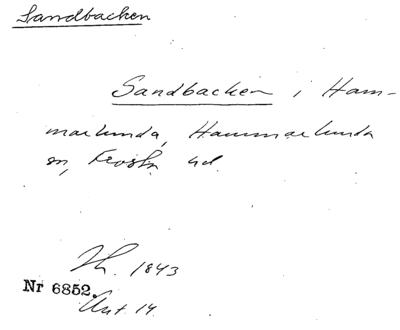 Sandbacken
Sandbacken i Ham-
marlunda, Hammarlunda
sn, Frosta hd.
Th. 1843
Nr 6852.
Ant 14.